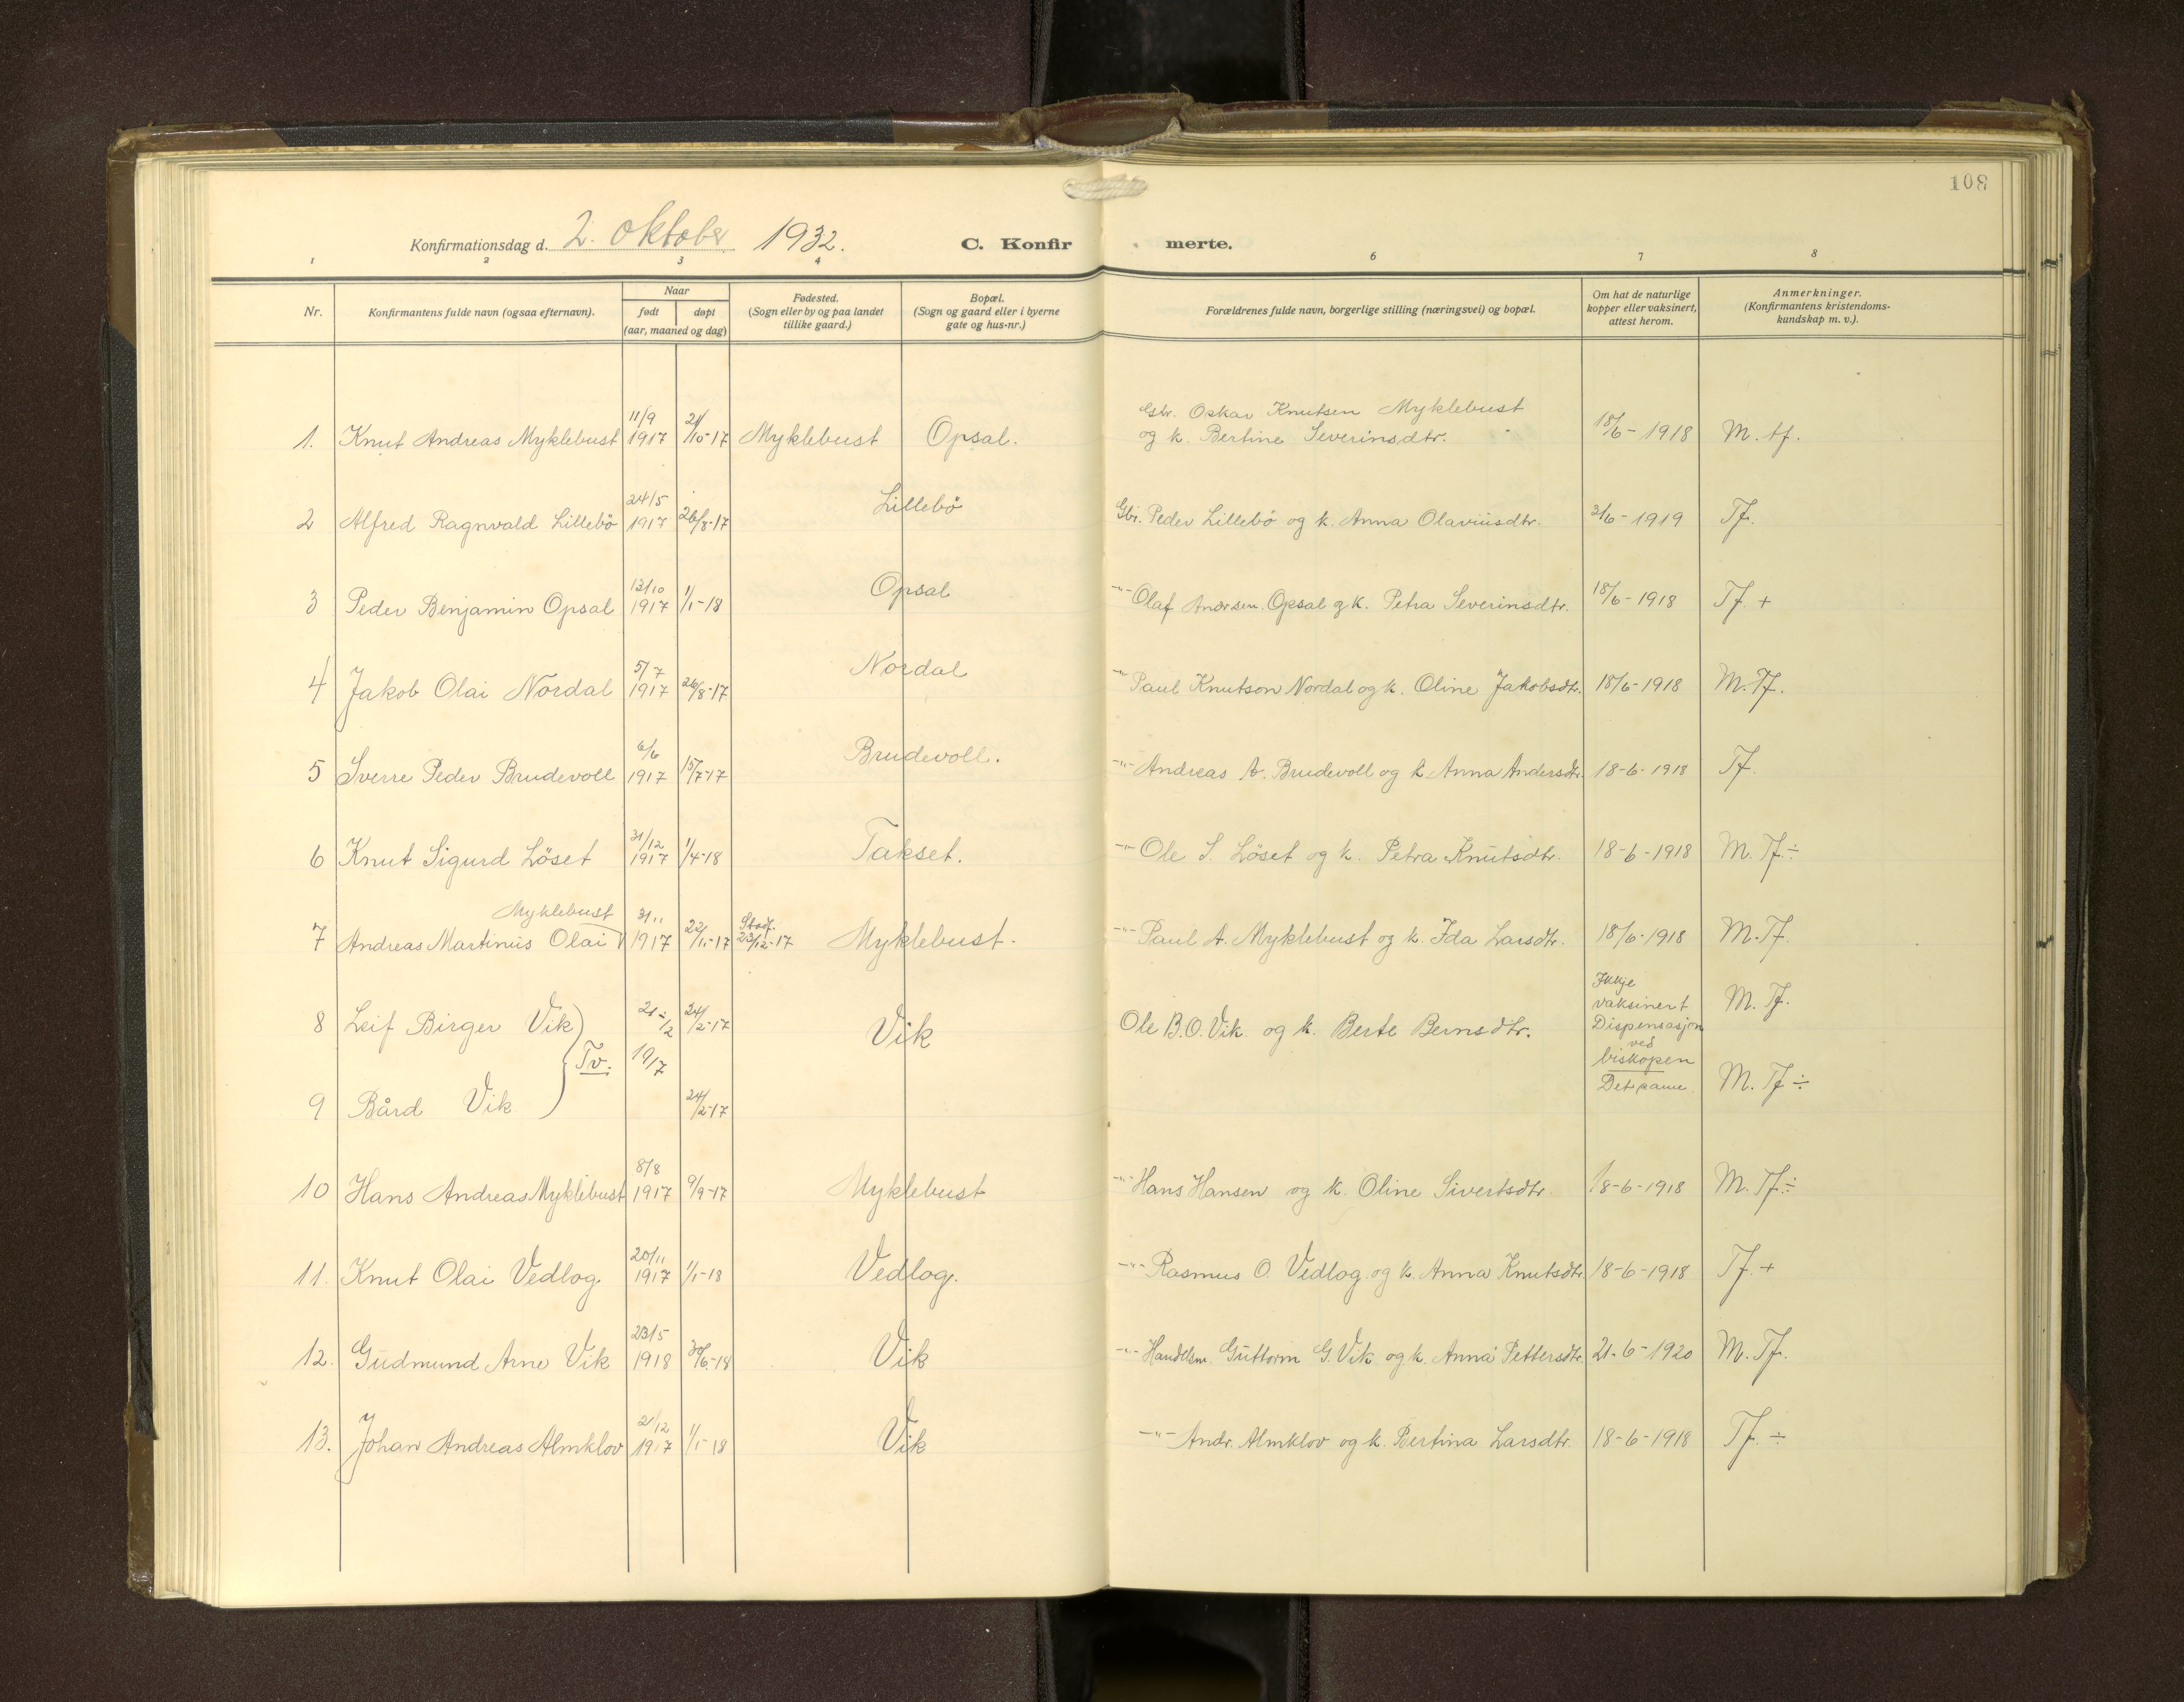 108
Konfirmationsdag d. 2. oktober 1932.
C. Konfirmerte.
1 2 3 4 6 7 8
Nr.
Konfirmantens fulde navn (ogsaa efternavn).
Naar
født døpt
(aar, maaned og dag)
Fødested.
(Sogn eller by og paa landet
tillike gaard.)
Bopæl.
(Sogn og gaard eller i byerne
gate og hus-nr.)
Forældrenes fulde navn, borgerlige stilling (næringsvei) og bopæl.
Om hat de naturlige
kopper eller vaksinert,
attest herom.
Anmerkninger.
(Konfirmantens kristendoms-
kundskap m. v.).
11/9 21/ Gbr. Oskar Knutsen Myklebust
1. Knut Andreas Myklebust 1917 10-17 Myklebust Opsal. og k. Bertine Severinsdtr. 18/6-1918 M. tf.
24/5 Lillebö
2 Alfred Ragnvald Lillebö 1917 26/8-17 Gbr. Peder Lillebö og k. Anna Olaviusdtr. 2/6-1919 Tf.
13/10 Opsal
3 Peder Benjamin Opsal 1917 1/1-18 -"- Olaf Andersen Opsal og k. Petra Severinsdtr. 18/6-1918 Tf. +
5/7 Nordal
4 Jakob Olai Nordal 1917 26/8-17 -"- Paul Knutson Nordal og k. Oline Jakobsdtr. 18/6-1918 M. Tf.
6/6 Brudevoll.
5 Sverre Peder Brudevoll 1917 15/7-17 -"- Andreas A. Brudevoll og k. Anna Andersdtr. 18-6-1918 Tf.
31/12
6 Knut Sigurd Löset 1917 1/4-18 Takset. -"- Ole S. Löset og k. Petra Knutsdtr. 18-6-1918 M. Tf. ÷
Myklebust 3/11 Stadf.
7 Andreas Martinus Olai 1917 22/11-17 23/12-17 Myklebust. -"- Paul A. Myklebust og k. Ida Larsdtr. 18/6-1918 M. Tf.
8 Leif Birger Vik 21/2 24/2-17 Vik Ole B.O. Vik og k. Berte Bernsdtr. Ikkje M. Tf.
vaksinert
Dispensasjon
ved
Tv. 1917 biskopen
9 Bård Vik 24/2-17 Det same. M. Tf ÷
8/8
10 Hans Andreas Myklebust 1917 9/9-17 Myklebust -"- Hans Hansen og k. Oline Sivertsdtr. 18-6-1918 M. Tf. ÷
20/11
11. Knut Olai Vedlog. 1917 1/1-18 Vedlog. -"- Rasmus O. Vedlog. og k. Anna Knutsdtr. 18-6-1918 Tf. +
23/5
12. Gudmund Arne Vik 1918 30/6-18 Vik -"- Handelsm. Guttorm G. Vik og k. Anna Pettersdtr. 21-6-1920 M. Tf.
2/12
13. Johan Andreas Almklov 1917 1/1-18 Vik -"- Andr. Almklov og k. Bertina Larsdtr. 18-6-1918 Tf. ÷